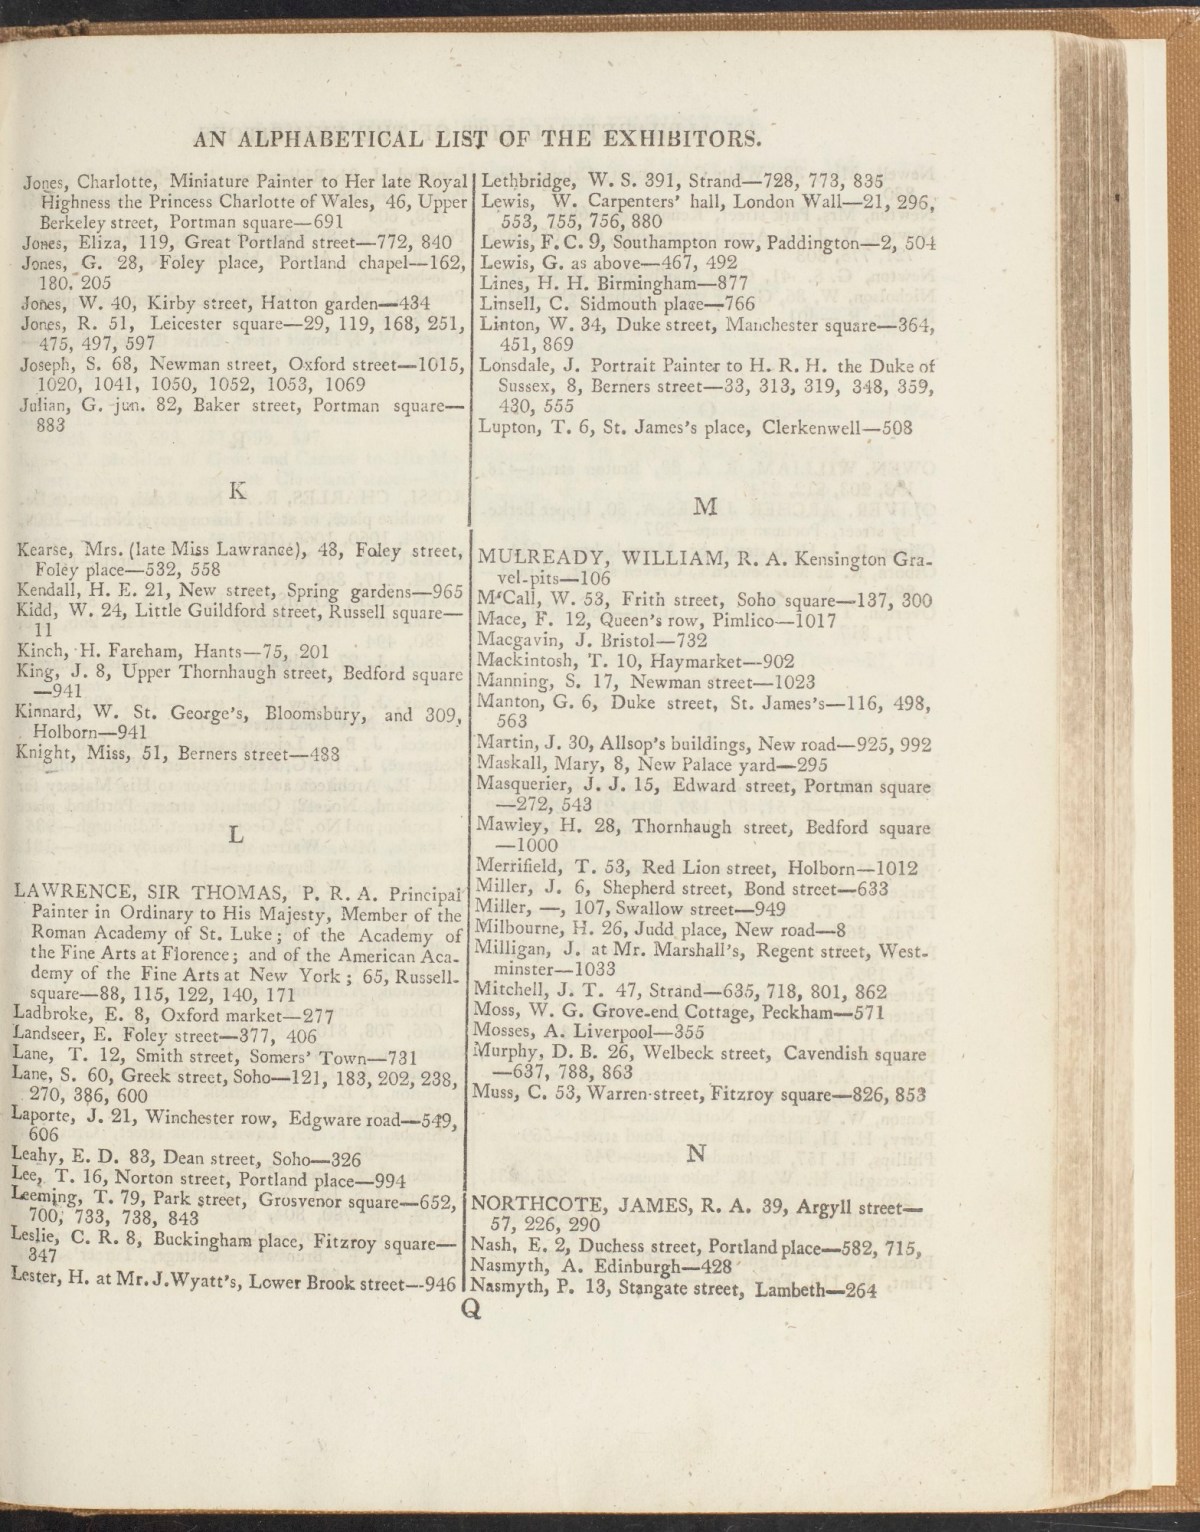 AN ALPHABETICAL LIST OF THE EXHIBITORS.
Jones, Charlotte, Miniature Painter to Her late Royal
Highness the Princess Charlotte of Wales, 46, Upper
Berkeley street, Portman square—691
Jones, Eliza, 119, Great Portland street—772, 840
Jones, G. 28, Foley place, Portland chapel—162,
180, 205
Jones, W. 40, Kirby street, Hatton garden—434
Jones, R. 51, Leicester square—29, 119, 168, 251,
475, 497, 597
Joseph, S. 68, Newman street, Oxford street—1015,
1020, 1041, 1050, 1052, 1053, 1069
Julian, G. jun. 82, Baker street, Portman square—
883
K
Kearse, Mrs. (late Miss Lawrance), 48, Foley street,
Foley place—532, 558
Kendall, H. E. 21, New street, Spring gardens—965
Kidd, W. 24, Little Guildford street, Russell square—
11
Kinch, H. Fareham, Hants—75, 201
King, J. 8, Upper Thornhaugh street, Bedford square
—941
Kinnard, W. St. George's, Bloomsbury, and 309,
Holborn—941
Knight, Miss, 51, Berners street—488
L
LAWRENCE, SIR THOMAS, P. R. A. Principal
Painter in Ordinary to His Majesty, Member of the
Roman Academy of St. Luke; of the Academy of
the Fine Arts at Florence; and of the American Aca-
demy of the Fine Arts at New York; 65, Russell-
square—88, 115, 122, 140, 171
Ladbroke, E. 8, Oxford market—277
Landseer, E. Foley street—377, 406
Lane, T. 12, Smith street, Somers' Town—731
Lane, S. 60, Greek street, Soho—121, 183, 202, 238,
270, 386, 600
Laporte, J. 21, Winchester row, Edgware road—549,
606
Leahy, E. D. 83, Dean street, Soho—326
Lee, T. 16, Norton street, Portland place—994
Leeming, T. 79, Park street, Grosvenor square—652,
700, 733, 738, 843
Leslie, C. R. 8, Buckingham place, Fitzroy square—
347
Lester, H. at Mr. J. Wyatt's, Lower Brook street—946
Lethbridge, W. S. 391, Strand—728, 773, 835
Lewis, W. Carpenters' hall, London Wall—21, 296,
553, 755, 756, 880
Lewis, F. C. 9, Southampton row, Paddington—2, 504
Lewis, G. as above—467, 492
Lines, H. H. Birmingham—877
Linsell, C. Sidmouth place—766
Linton, W. 34, Duke street, Manchester square—364,
451, 869
Lonsdale, J. Portrait Painter to H. R. H. the Duke of
Sussex, 8, Berners street—33, 313, 319, 348, 359,
430, 555
Lupton, T. 6, St. James's place, Clerkenwell—508
M
MULREADY, WILLIAM, R. A. Kensington Gra-
vel-pits—106
M'Call, W. 53, Frith street, Soho square—137, 300
Mace, F. 12, Queen's row, Pimlico—1017
Macgavin, J. Bristol—732
Mackintosh, T. 10, Haymarket—902
Manning, S. 17, Newman street—1023
Manton, G. 6, Duke street, St. James's—116, 498,
563
Martin, J. 30, Allsop's buildings, New road—925, 992
Maskall, Mary, 8, New Palace yard—295
Masquerier, J. J. 15, Edward street, Portman square
—272, 543
Mawley, H. 28, Thornhaugh street, Bedford square
—1000
Merrifield, T. 53, Red Lion street, Holborn—1012
Miller, J. 6, Shepherd street, Bond street—633
Miller, —, 107, Swallow street—949
Milbourne, H. 26, Judd place, New road—8
Milligan, J. at Mr. Marshall's, Regent street, West-
minster—1033
Mitchell, J. T. 47, Strand—635, 718, 801, 862
Moss, W. G. Grove-end Cottage, Peckham—571
Mosses, A. Liverpool—355
Murphy, D. B. 26, Welbeck street, Cavendish square
—637, 788, 863
Muss, C. 53, Warren-street, Fitzroy square—826, 853
N
NORTHCOTE, JAMES, R. A. 39, Argyll street—
57, 226, 290
Nash, E. 2, Duchess street, Portland place—582, 715,
Nasmyth, A. Edinburgh—428
Nasmyth, P. 13, Stangate street, Lambeth—264
Q